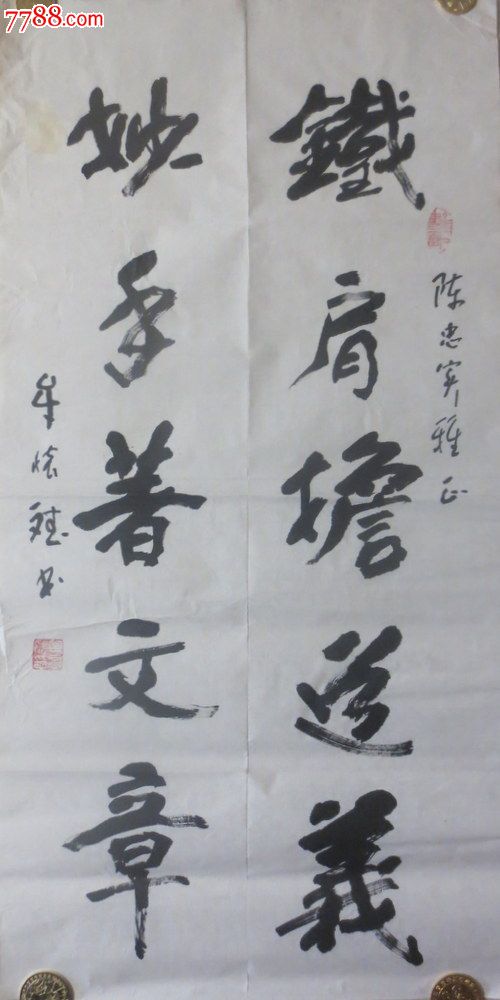 7788.com
陈忠实雅正
鐵肩擔道義
妙手著文章
牟怀书